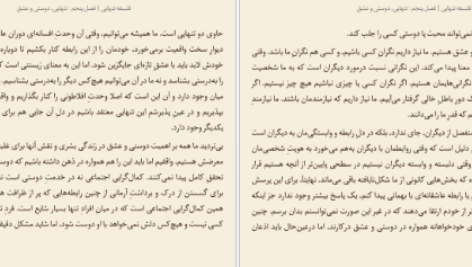 فلسفه تنهایی | فصل پنجم: تنهایی، دوستی و عشق
نمی‌تواند محبت یا دوستی کسی را جلب کند.
و عشق هستیم. ما نیاز داریم نگران کسی باشیم، و کسی هم نگران ما باشد. وقتی
معنا پیدا می‌کند. این نگرانی نسبت درمورد دیگران است که به ما شخصیت
نگرانی‌هایمان هستیم. اگر نگران کسی یا چیزی نباشیم هیچ چیز نیستیم. اگر
دور باطل خالی گرفتار می‌آییم. ما نیاز داریم که نیازمندمان باشند. ما نیازمند
م که قدر ما را می‌دانند.
منفصل از دیگران، جای ندارد، بلکه در دلِ رابطه و وابستگی‌مان به دیگران است
دلیل است که وقتی روابطمان با دیگران به‌هم می‌خورد به هویتِ شخصی‌مان
وقتی دلبسته و وابسته دیگران نیستیم در سطحی پایین‌تر از آنچه هستیم قرار
که بخش‌هایی کانونی از ما شکل‌نایافته باقی می‌ماند. نهایتاً، برای این پرسش
با رابطه عاشقانه‌ای با بهمانی پیدا کنم، یک پاسخ بیشتر وجود ندارد جز اینکه
از خودم ارتقا می‌دهند که در غیر این صورت نمی‌توانستم بدان برسم. چنین
ی خودخواهانه همواره در دوستی و عشق درکارند، اما درعین‌حال باید اذعان
فلسفه تنهایی | فصل پنجم: تنهایی، دوستی و عشق
حاوی دو تنهایی است. ما همیشه می‌توانیم، وقتی آن وحدت افسانه‌ای دوران
دیوار سخت واقعیت برمی‌خورد، خودمان را از این رابطه کنار بکشیم تا دوباره
خودش لابد باید با عشق تازه‌ای جایگزین شود. اما این به معنای زیستنی است که
را به‌درستی بشناسد و نه ما در آن می‌توانیم هیچ‌کس دیگر را به‌درستی بشناسیم.
میان وجود دارد و آن این است که اصلا وحدتِ افلاطونی را کنار بگذاریم و واقعیت
بپذیریم و در عین پذیرشِ این تنهایی معتقد باشیم در دل آن جایی هم برای
یکدیگر وجود دارد.
بی‌تردید ما همه بر اهمیت دوستی و عشق در زندگی بشری و نقش آنها برای غلبه
معرفش هستیم، واقفیم اما باید این را هم همواره در ذهن داشته باشیم که دوستی
تحقق کامل پیدا نمی‌کنند. کمال‌گرایی اجتماعی نه در خدمت دوستی است نه
برای گسستن از درک و برداشتِ آرمانی از چنین رابطه‌هایی که پر از ظرافت هستند
همین کمال‌گرایی اجتماعی است که در میان افراد تنها بسیار شایع است. فرد تنها
کسی نیست و هیچ‌کس دلش نمی‌خواهد با او دوست شود، اما شاید مشکل دقیقا